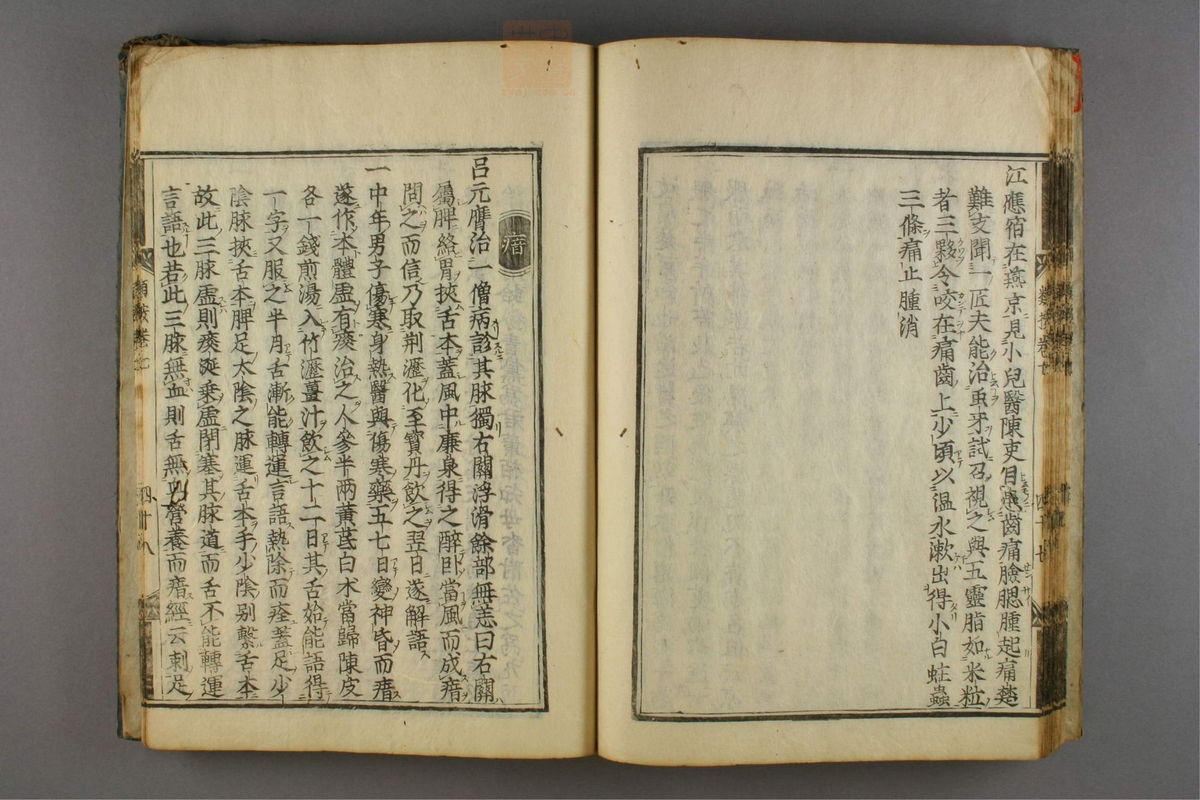 江應宿在燕京見小兒醫陳吏目患齒痛臉腮腫起痛楚
難支聞一匠夫能治虫牙試召視之與五靈脂如米粒
者三夥令咬在痛齒上少頃以温水漱出得小白蛀蟲
三條痛止腫消
瘖
吕元膺治一僧病診其脉獨右關浮滑餘部無恙曰右關
屬脾絡胃挾舌本蓋風中廉泉得之醉卧當風而成瘖
問之而信乃取荆瀝化至寳丹飲之翌日遂解語
一中年男子傷寒身熱醫與傷寒藥五七日變神昏而瘖
遂作本體虚有痰治之人參半兩黄芪白术當歸陳皮
各一錢煎湯入竹瀝薑汁飲之十二日其舌始能語得
一字又服之半月舌漸能轉運言語熱除而痊蓋足少
陰脉挾舌本脾足太陰之脉運舌本手少陰别繫舌本
故此三脉虚則痰涎乗虚閉塞其脉道而舌不能轉運
言語也若此三脉無血則舌無以營養而瘖經云刺足